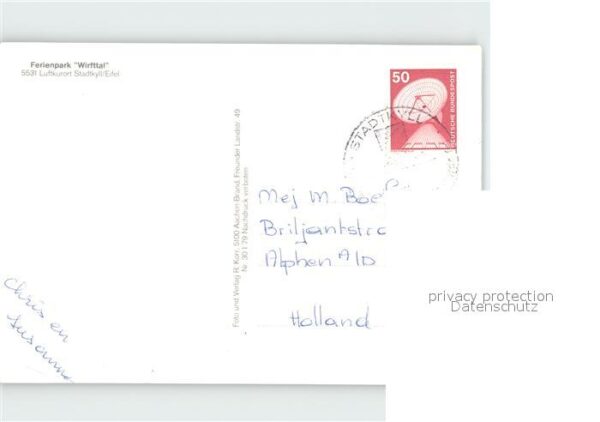 Ferienpark "Wirfttal"
5531 Luftkurort Stadtkyll/Eifel
50
DEUTSCHE BUNDESPOST
STADTKYLL
Foto und Verlag R. Korr, 5100 Aachen-Brand, Freunder Landstr. 49
Nr. 30 1 79 Nachdruck verboten
Mej M. Boe
Briljantstra
Alphen A/D
Holland
Chris en
Susanne
privacy protection
Datenschutz